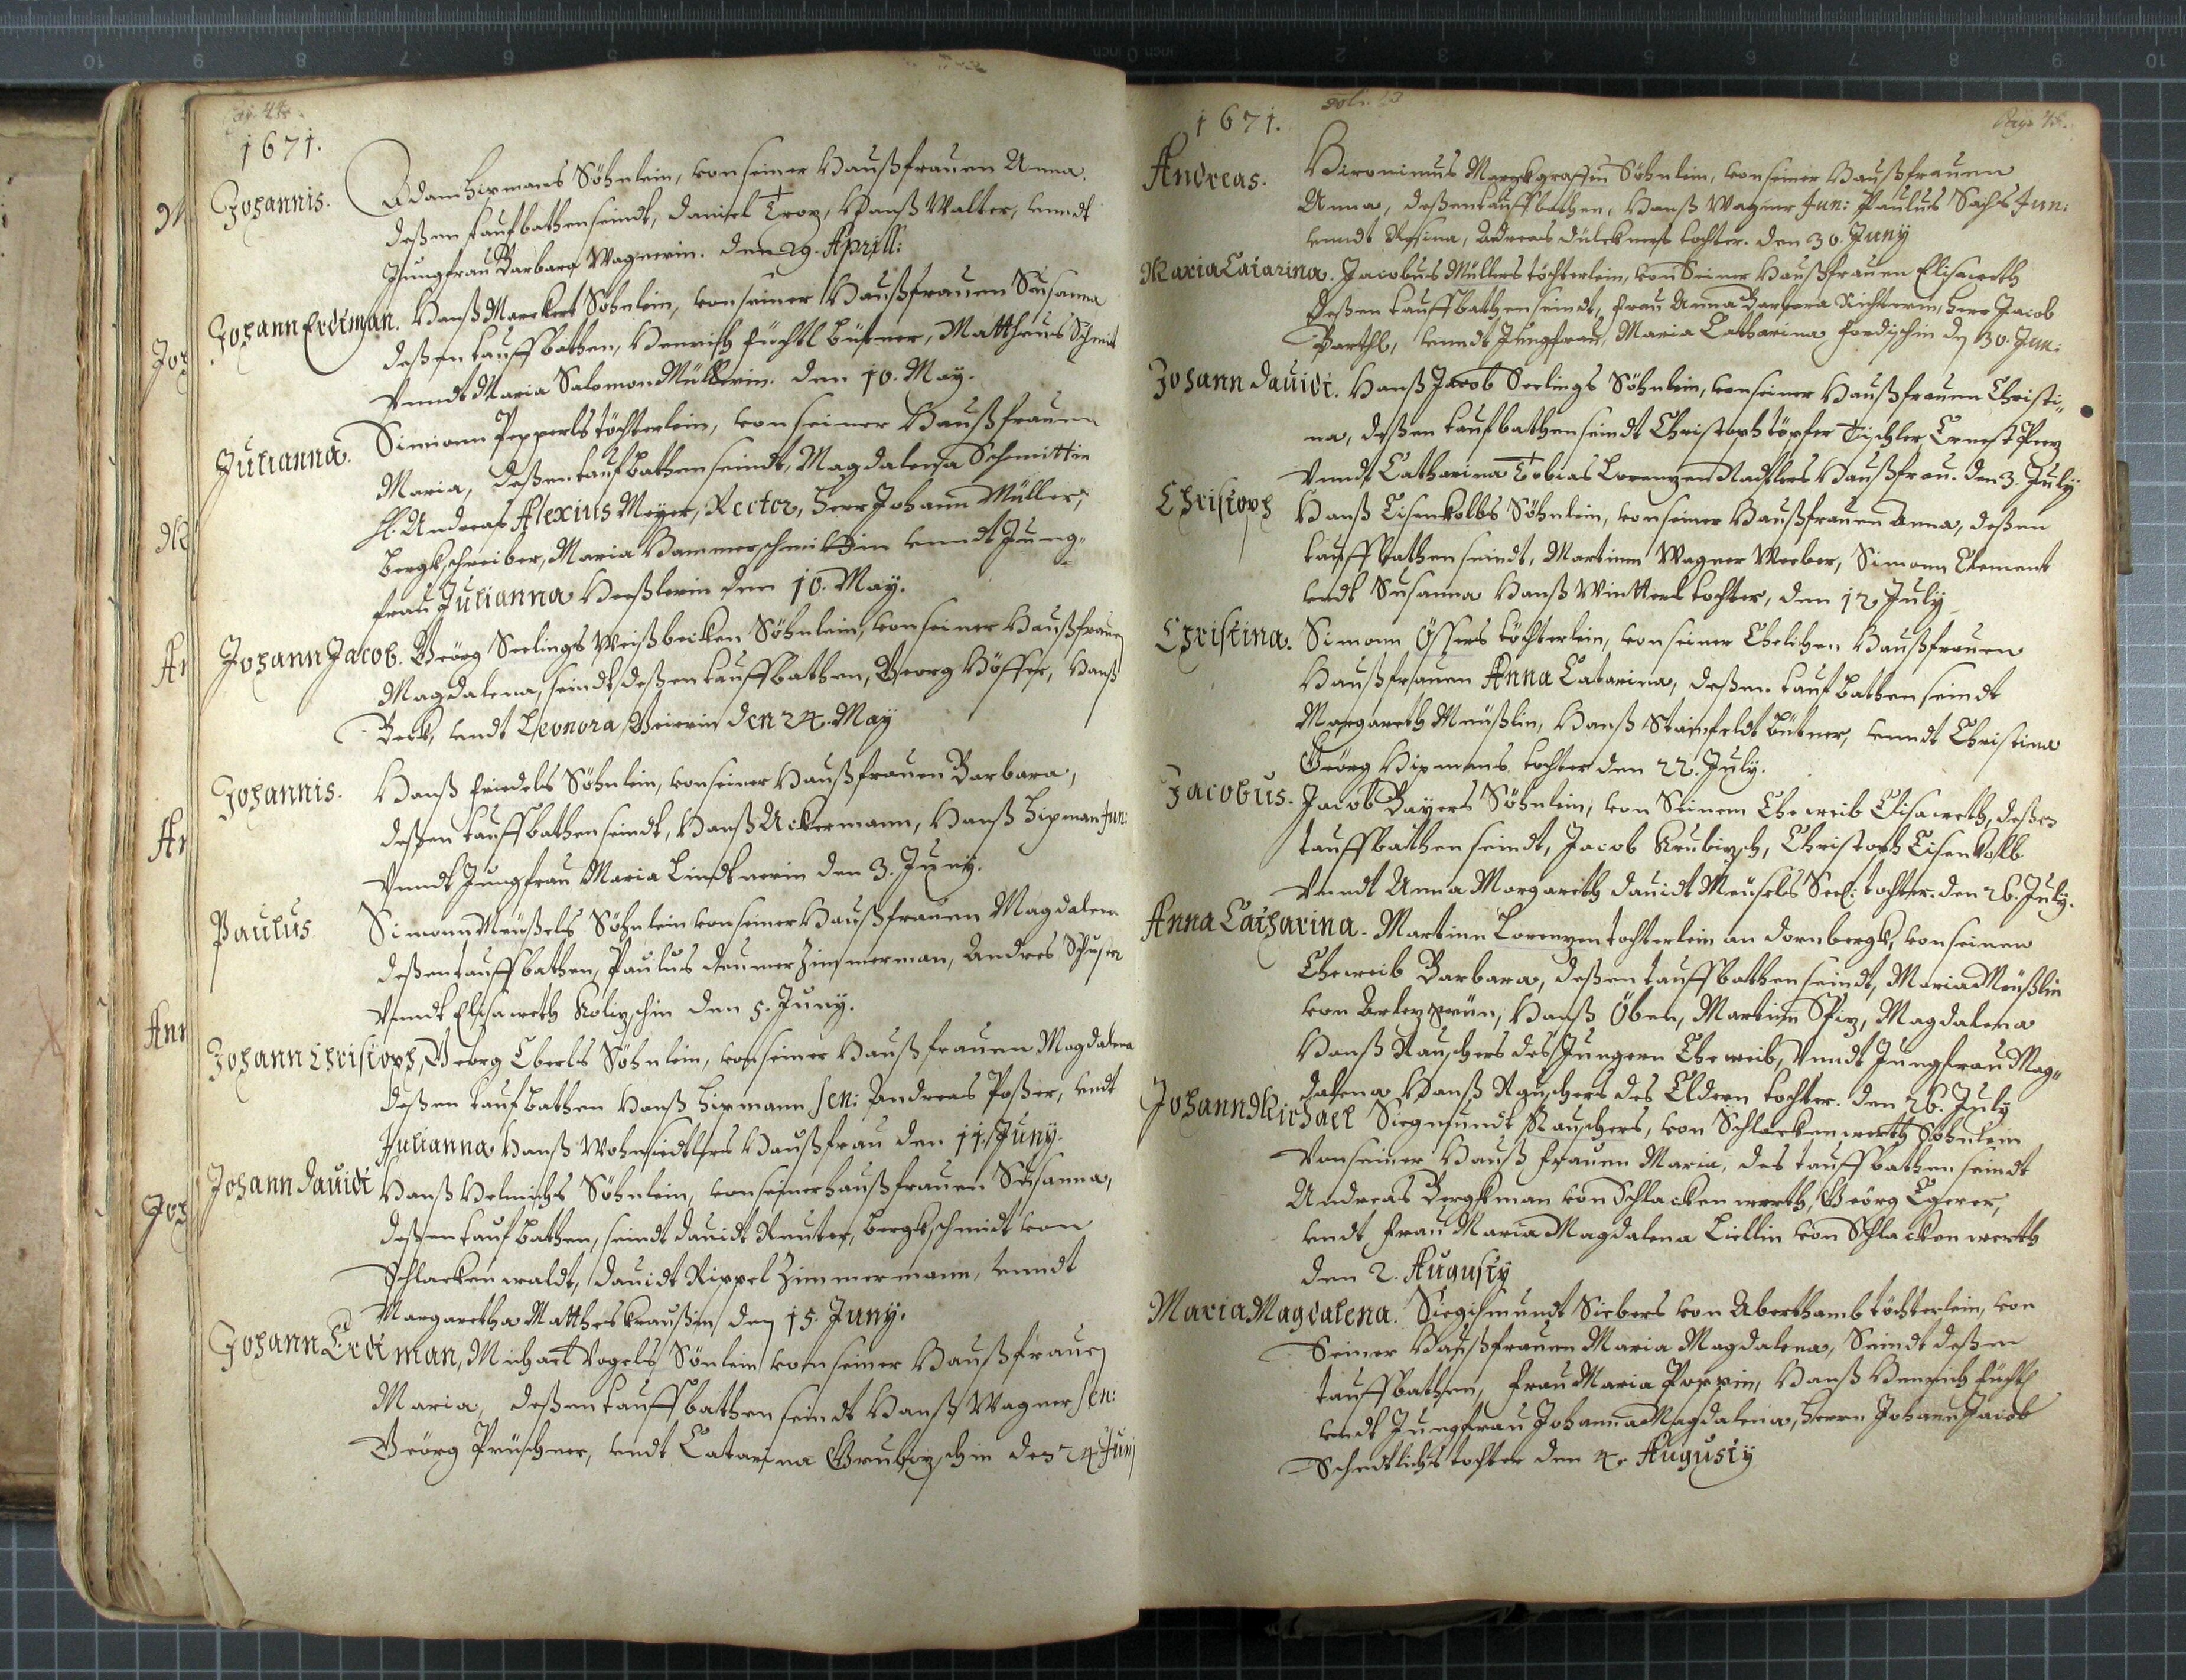 Pag. 44.
1671.
Johannis. Adam Hixmans Söhnlein, von seiner Haußfrauen Anna,
deßen taufbathen seindt, Daniel Troy, Hanß Walter, unndt
Jungfrau Barbara Wagnerin. den 29. Aprill:
Johann Erdtman. Hanß Marckert Söhnlein, von seiner Haußfrauen Susanna
deßen tauffbathen, Henrich füchtl büttner, Mattheus Schmit
Vnndt Maria Salomon Müllerin. den 10. May.
Julianna. Simonn Pepperls töchterlein, von seiner Haußfrauen
Maria, deßen taufbathen seindt, Magdalena Schmittin
H. Andreas Alexius Meyer, Rector, Herr Johann Müller,
Bergkschreiber, Maria Hammerschmittin unndt Jung-
frau Julianna Heßlerin den 10. May.
Johann Jacob. Geörg Seelings Weißbecken Söhnlein, von seiner Haußfrauen
Magdalena, seindt deßen tauffbathen, Georg Höffer, Hanß
Beck, undt Leonora den 24. May
Johannis. Hanß friedels Söhnlein, von seiner Haußfrauen Barbara,
deßen tauffbathen seindt, Hanß Ackermann, Hanß Hixman Jun:
Vnndt Jungfrau Maria Lindtnerin den 3. Juny.
Paulus Simonn Meußels Söhnlein von seiner Haußfrauen Magdalena
deßen tauffbathen, Paulus Neumer Zimmerman, Andres Schuster
Vnndt Elisaweth Kolizschin den 5. Juny.
Johann Christoph, Georg Eberls Söhnlein, von seiner Haußfrauen Magdalena
deßen taufbathen Hanß Hixmann sen: Andreas Poßer, undt
Julianna Hanß Wohnsiedtlers Haußfrau den 11. Juny.
Johann Dauidt Hanß Helmichs Söhnlein, von seiner haußfrauen Susanna,
deßen taufbathen, seindt Dauidt Reuter, bergkschmidt von
Schlackenwaldt, Dauidt Rippel Zimmermann, unndt
Margaretha Matthes Kraußin den 15. Juny.
Johann Erdtman, Michael Vogels Sönlein von seiner Haußfrauen
Maria, deßen tauffbathen seindt Hanß Wagner sen:
Geörg Prüschner, undt Catarina Grubizschin den 24 Junj
fol. 23
Pag. 45.
1671.
Andreas. Hironimus Marckgraffen Söhnlein, von seiner Haußfrauen
Anna, deßen tauffbathen, Hanß Wagner Jun: Paulus Sachs Jun:
unndt Rosina, Andreas Dülckners tochter. den 30. Juny
Maria Catarina. Jacobus Müllers töchterlein, von Seiner Haußfrauen Elisaweth
deßen tauffbathen seindt, frau Anna Barbara Richterin, Herr Jacob
Barthl, unndt Jungfrau, Maria Catharina fordischin den 30. Jun:
Johann Dauidt. Hanß Jacob Seelings Söhnlein, von seiner Haußfrauen Christi-
na, deßen taufbathen seindt Christoph töpfer Tischler Ernest Pey
Vnndt Catharina Tobias Lorenzen Nadtlers Haußfrau. den 3. July
Christoph Hanß Eisenkolbs Söhnlein, von seiner Haußfrauen Anna, deßen
tauffbathen seindt, Martinn Wagner Weeber, Simonn Clement
undt Susanna Hanß Winters tochter, den 12 July
Christina. Simonn Össers töchterlein, von seiner Ehelichen Haußfrauen
Haußfrauen Anna Catarina, deßen taufbathen seindt
Margareth Meußlin, Hanß Stainfeldt bütner, unndt Christina
Geörg Hixmans tochter den 22. July.
Jacobus. Jacob Bayers Söhnlein, von Seinem Eheweib Elisaweth, deßen
tauffbathen seindt, Jacob Krubizsch, Christoph Eisenkolb
Vnndt Anna Margareth Dauidt Meußels Seel: tochter. den 26. July.
Anna Catharina. Martinn Lorenzen tochterlein an Dornbergk, von seinen
Eheweib Barbara, deßen tauffbathen seindt, Maria Meußlin
von Arlezgrün, Hanß Öben, Martinn Spiz, Magdalena
Hanß Rauschers des Jungern Eheweib, Vnndt Jungfrau Mag-
dalena Hanß Rauschers des Eldern tochter. den 26. July
Johann Michael Siegmundt Rauschers, von Schlackenwerth Söhnlein
Von seiner Haußfrauen Maria, des tauffbathen seindt
Andreas Bergkman von Schlackenwerth, Geörg Egerer,
undt frau Maria Magdalena Liellin von Schlackenwerth
den 2. Augusty
Maria Magdalena. Siegismundt Siebers von Aberthamb töchterlein, von
Seiner Haußfrauen Maria Magdalena, Seindt deßen
tauffbathen, frau Maria Poppin, Hanß Henrich füchtl
undt Jungfrau Johanna Magdalena, Herrn Johann Jacob
Schedtlichs tochter den 4. Augusty